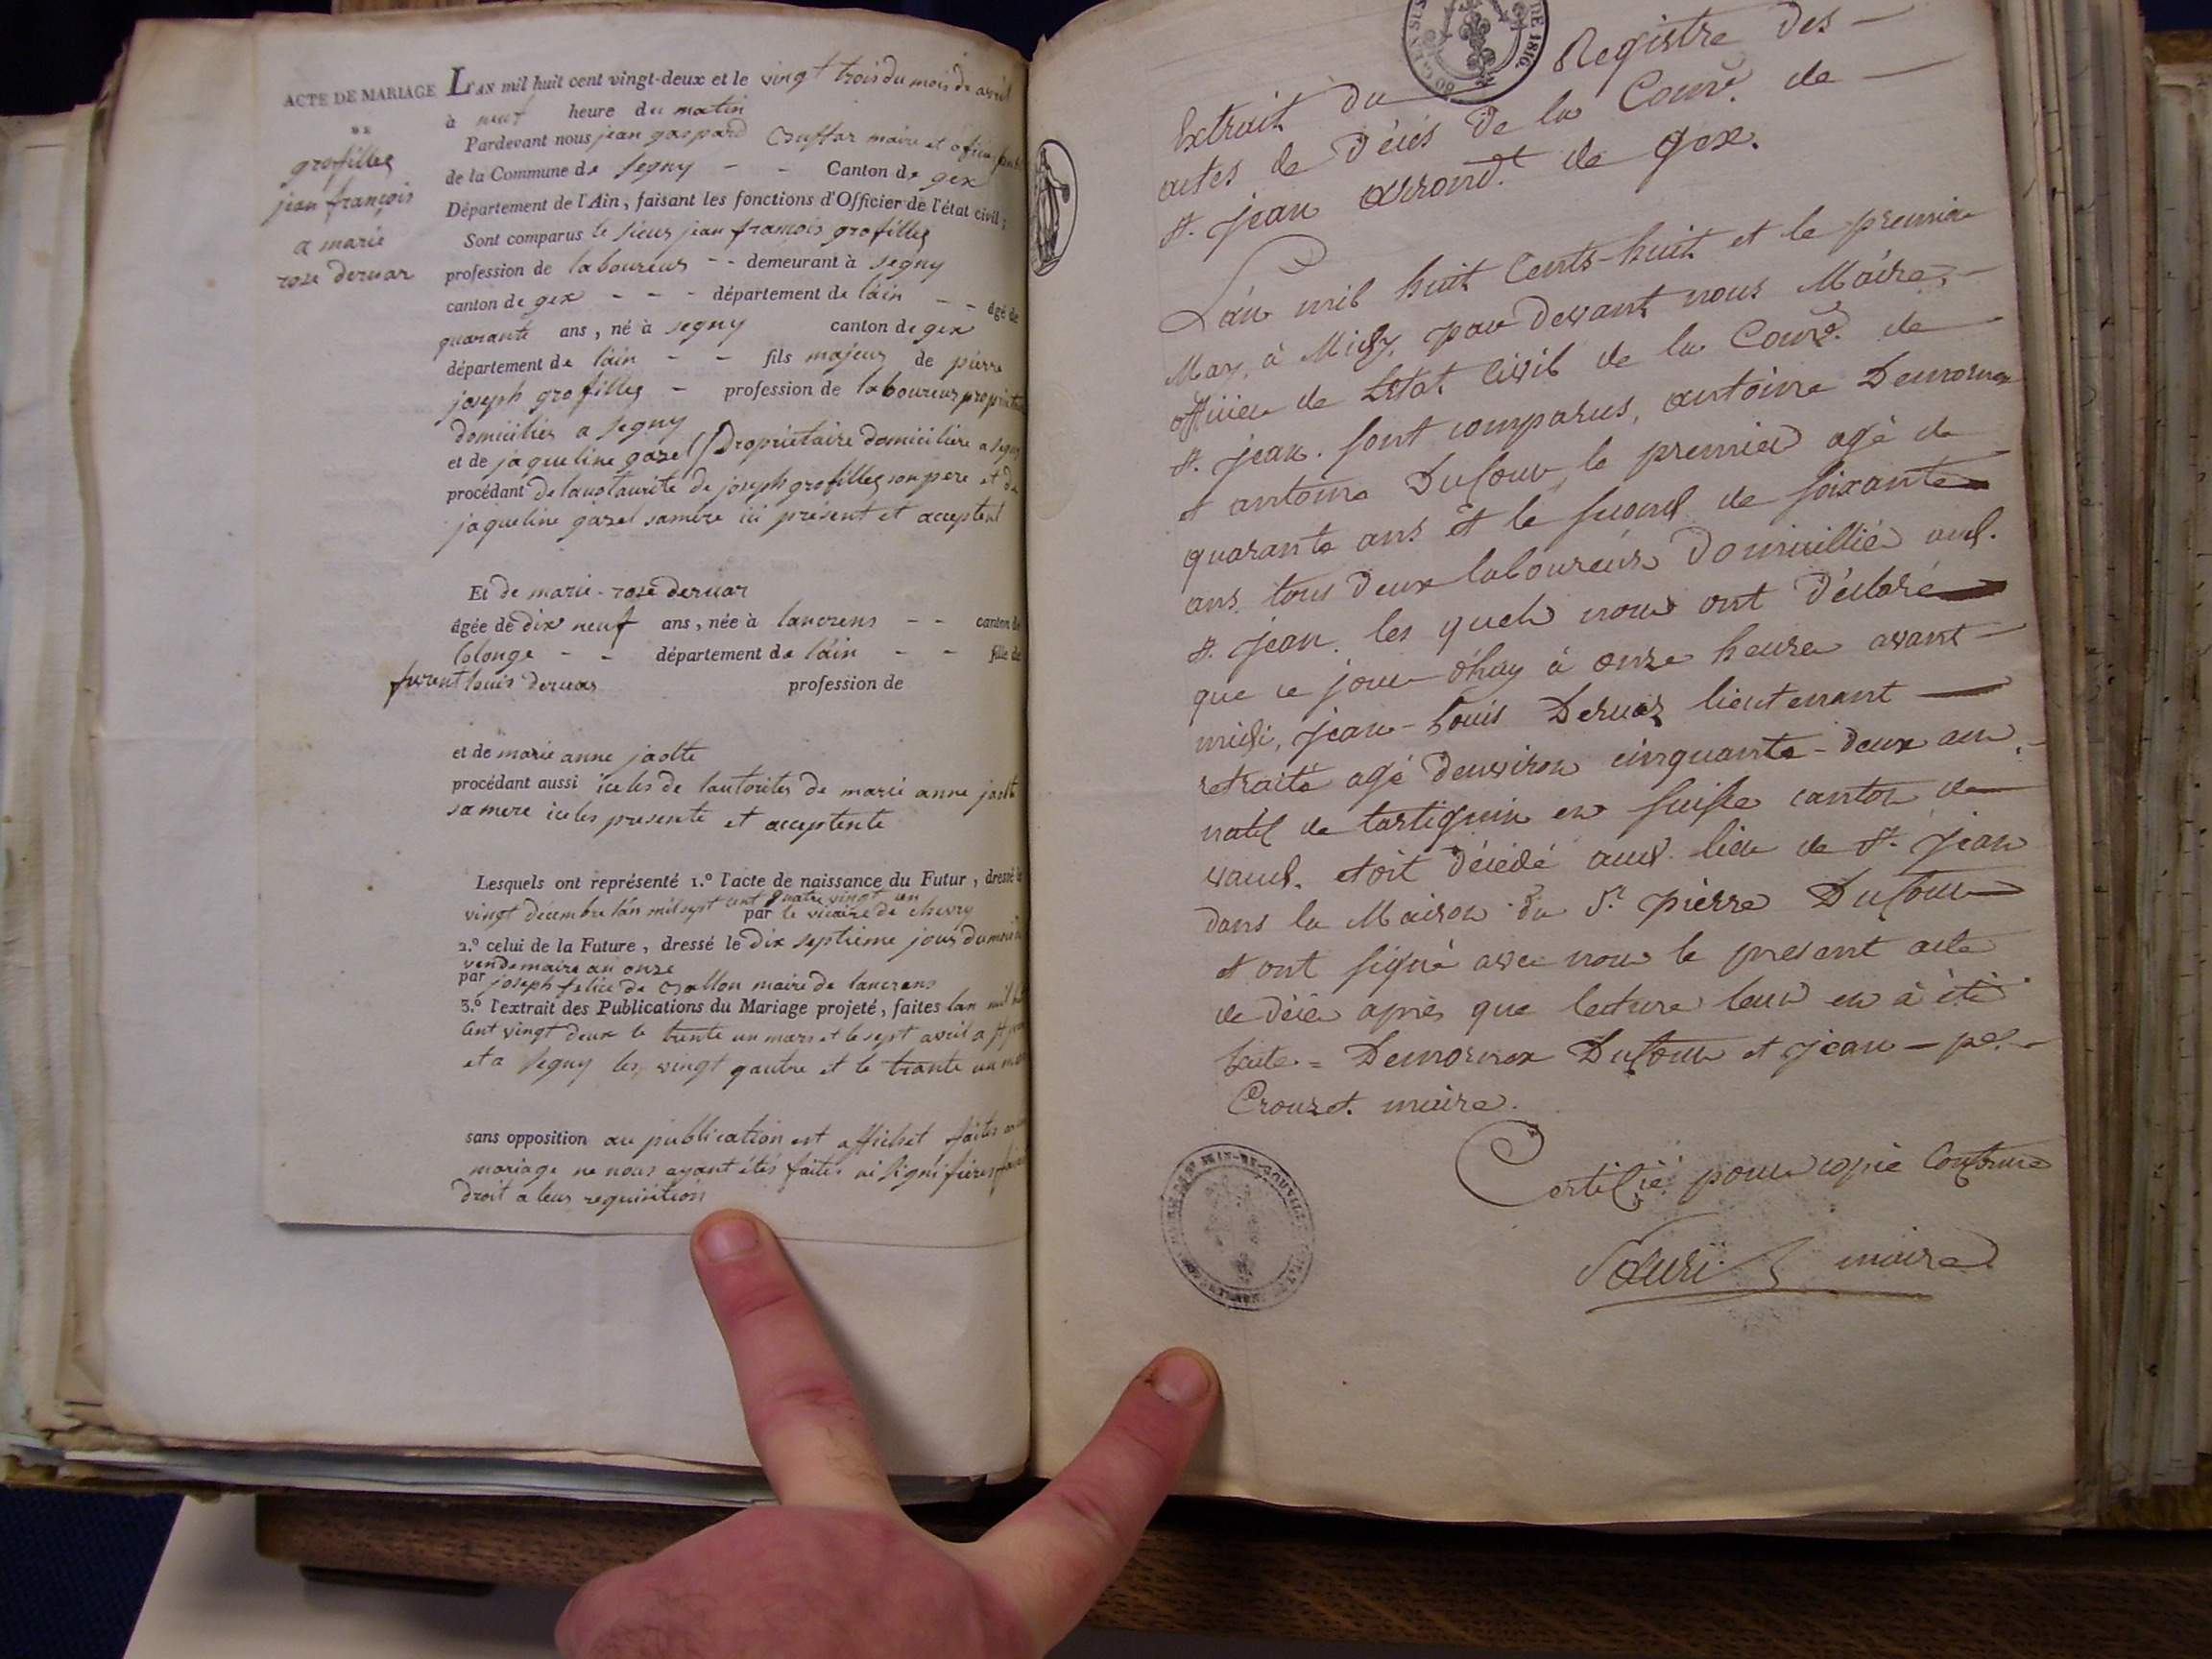 ACTE DE MARIAGE
DE
grosfilley
jean françois
a marie
rose deruar
L'AN mil huit cent vingt-deux et le vingt trois du mois de avril
à neuf heure du matin
Pardevant nous jean gaspard maire et
de la Commune de segny - - Canton de gex
Département de l'Ain, faisant les fonctions d'Officier de l'état civil;
Sont comparus le sieur jean françois grosfilley
profession de laboureur - - demeurant à segny
canton de gex - - - département de láin - - âgé de
quarante ans, né à segny canton de gex
département de láin - - fils majeur de pierre
joseph grosfilley - profession de laboureur
domiciliés a segny
et de jaqueline gazel proprietaire domiciliere a
procédant de lauotaurité de joseph grosfilley son pere et de
jaqueline gazel samere ici present et acceptent
Et de marie-rose deruar
âgée de dix neuf ans, née à lancrens - - canton de
Colonge - - département de láin - - fille de
louis deruar profession de
et de marie anne jaolte
procédant aussi icelés de lautorités de marie anne
samere icelés presente et acceptente
Lesquels ont représenté 1.º l'acte de naissance du Futur, dressé le
vingt décembre lán mil sept cent quatre vingt un
par le vicaire de chevry
2.º celui de la Future, dressé le dix septieme jour du mois
vendemaire an onze
par joseph felix de maire de lancrens
3.º l'extrait des Publications du Mariage projeté, faites lan mil
cent vingt deux le trente un mars et le sept avril a st
et a segny les vingt qautre et le trante un
sans opposition au publication est affichet faites
mariage ne nous ayant étés faites ni signifiéres
droit a leur requisition
Extrait du Registre des -
actes de Décés de la Comné. de -
st. jean arrondt. de gex.
L'an mil huit Cents-huit et le premier
May, à Midy, par devant nous Maire, -
officier de l'Etat Civil de la Comné. de
st. jean. sont comparus, antoine Demornex
et antoine Dufour, le premier agé de
quarante ans et le second de soixante
ans, tous deux laboureurs Domicillié aud.
st. jean. les quels nous ont Déclaré
que ce jour d'huy à onze heure avant -
midi, jean-Louis Deruaz lieutenant
retraité agé denviron cinquante-deux an
natif de tartiguin en suisse canton de
vaud. etoit décédé aud. lieu de st. jean
dans la Maison du Sr. pierre Dufour
et ont signé avec nous le present acte
de décé après que lecture leur en à été
faite = Demornex Dufour et jean - pre.
Crouzet. maire.
Certifié pour copie Conforme
maire